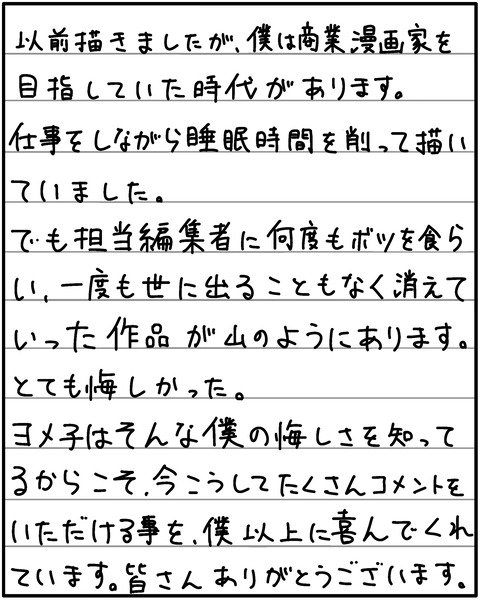 以前描きましたが、僕は商業漫画家を
目指していた時代があります。
仕事をしながら睡眠時間を削って描い
ていました。
でも担当編集者に何度もボツを食ら
い、一度も世に出ることもなく消えて
いった作品が山のようにあります。
とても悔しかった。
ヨメ子はそんな僕の悔しさを知って
るからこそ、今こうしてたくさんコメントを
いただける事を、僕以上に喜んでくれ
ています。皆さんありがとうございます。